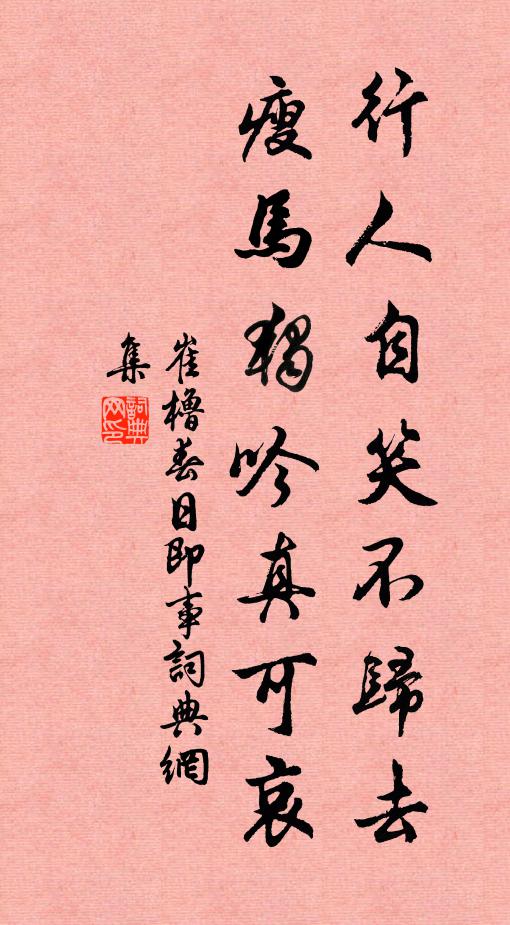 行人自笑不歸去
瘦馬獨吟真可哀
崔櫓春日即事詞典網
集
詞典
网印